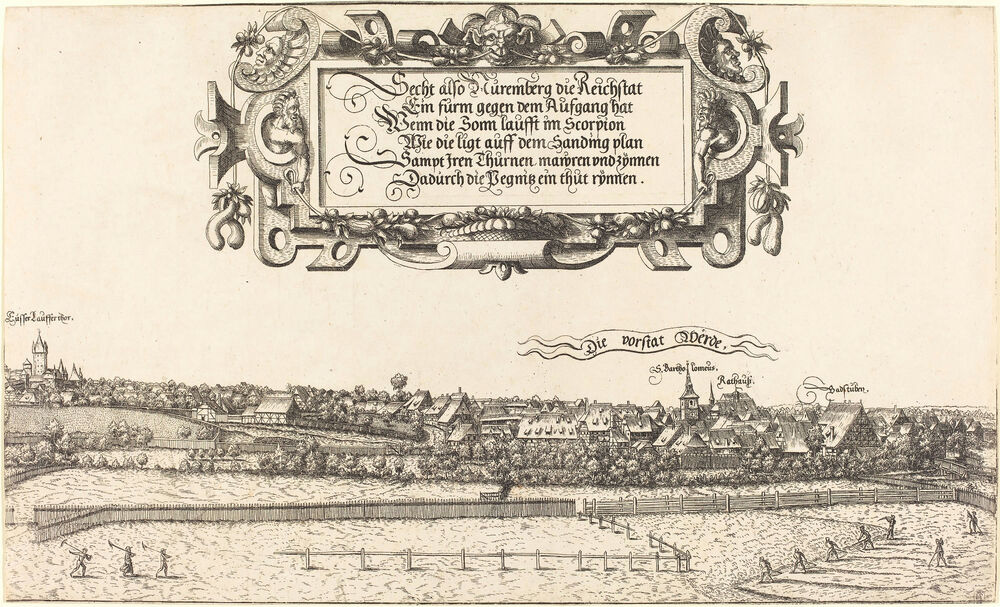 Secht also Nuremberg die Reichstat
Ein fürm gegen dem Aufgang hat
Wenn die Sonn laufft im Scorpion
Wie die ligt auff dem Sanding plan
Sampt Iren Thürnen mawren vnd zÿnnen
Dadurch die Pegnitz ein thut rÿnnen.
Eüsser Lauffer thor.
Die vorstat Wërde.
S. Bartholomeus.
Rathauß.
Badstuben.